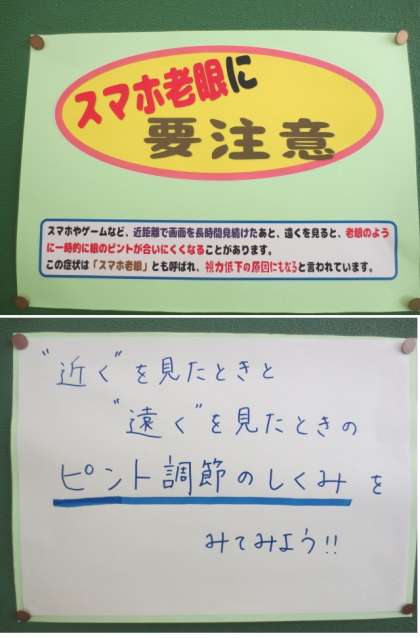 スマホ老眼に
要注意
スマホやゲームなど、近距離で画面を長時間見続けたあと、遠くを見ると、老眼のよう
に一時的に眼のピントが合いにくくなることがあります。
この症状は「スマホ老眼」とも呼ばれ、視力低下の原因にもなると言われています。
"近く"を見たときと
"遠く"を見たときの
ピント調節のしくみを
みてみよう!!